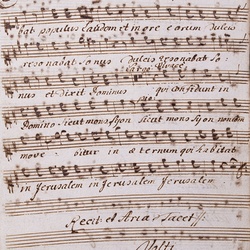 bat populus laudem et more earum dulcis
resonabat sonus dulcis resonabat so:
nus et Dixit Dominus qui confidunt in
Domino sicut mons Syon sicut mons Syon non com
move: bitur in æternum qui habitat
in Jerusalem in Jerusalem Jerusalem
Recit et Aria Tacet
Volti